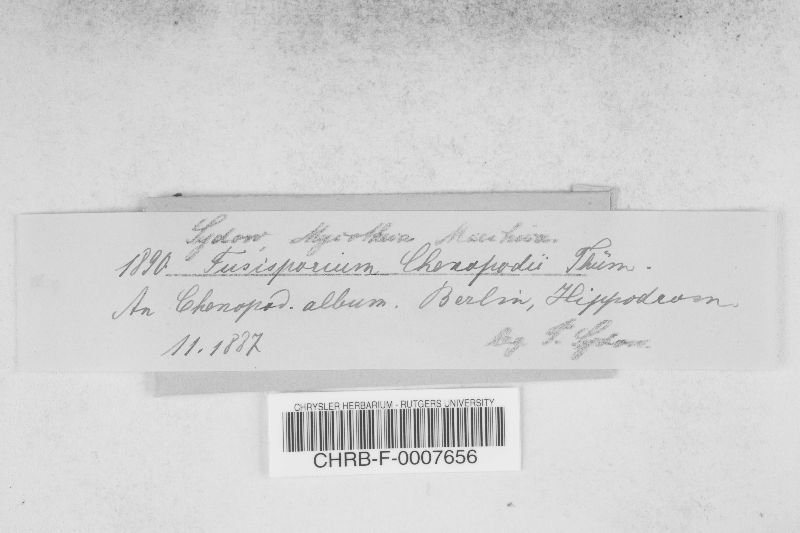 Sydow Mycotheca Marchica.
1890. Fusisporium Chenopodii Thüm.
An Chenopod. album. Berlin, Hippodrom
11.1887 leg P. Sydow.
CHRYSLER HERBARIUM - RUTGERS UNIVERSITY
CHRB-F-0007656